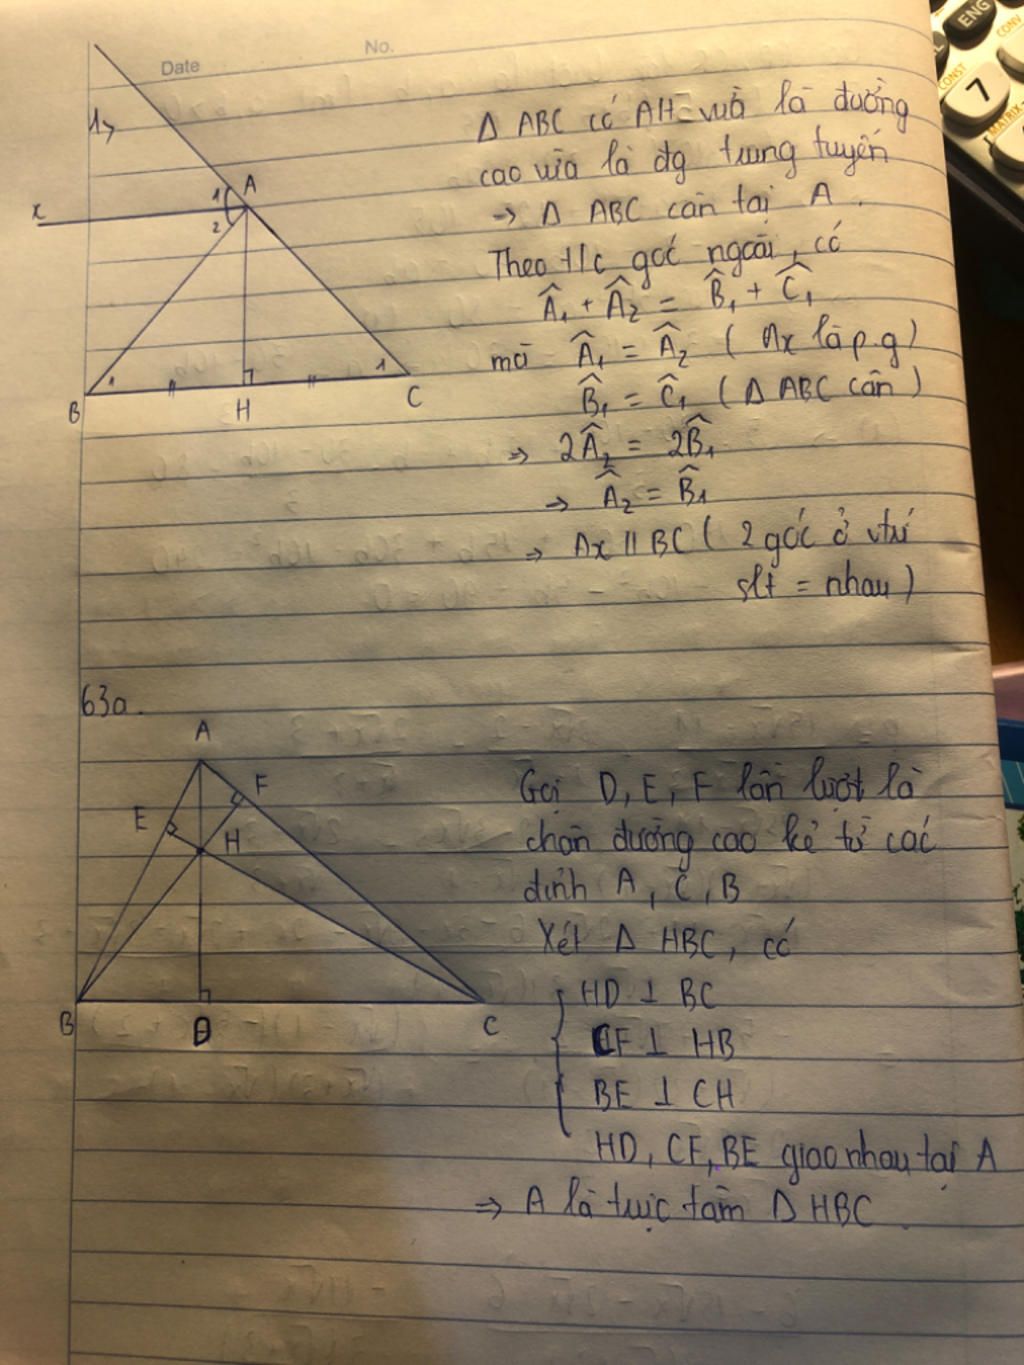 Date
No.
1,
x
1
A
2
1
1
B
H
C
Δ ABC có AH vừa là đường
cao vừa là đg trung tuyến
→ Δ ABC cân tại A.
Theo t/c góc ngoài, có
Â₁ + Â₂ = B̂₁ + Ĉ₁
mà Â₁ = Â₂ ( Ax là p.g)
B̂₁ = Ĉ₁ ( Δ ABC cân )
⇒ 2Â₂ = 2B̂₁
→ Â₂ = B̂₁
⇒ Ax || BC ( 2 góc ở vtrí
slt = nhau )
63a.
A
F
E
H
B
D
C
Gọi D, E, F lần lượt là
chân đường cao kẻ từ các
đỉnh A, C, B
Xét Δ HBC, có
HD ⊥ BC
CF ⊥ HB
BE ⊥ CH
HD, CF, BE giao nhau tại A
⇒ A là trực tâm Δ HBC.
ENG
CONV
CONST
7
MATRIX